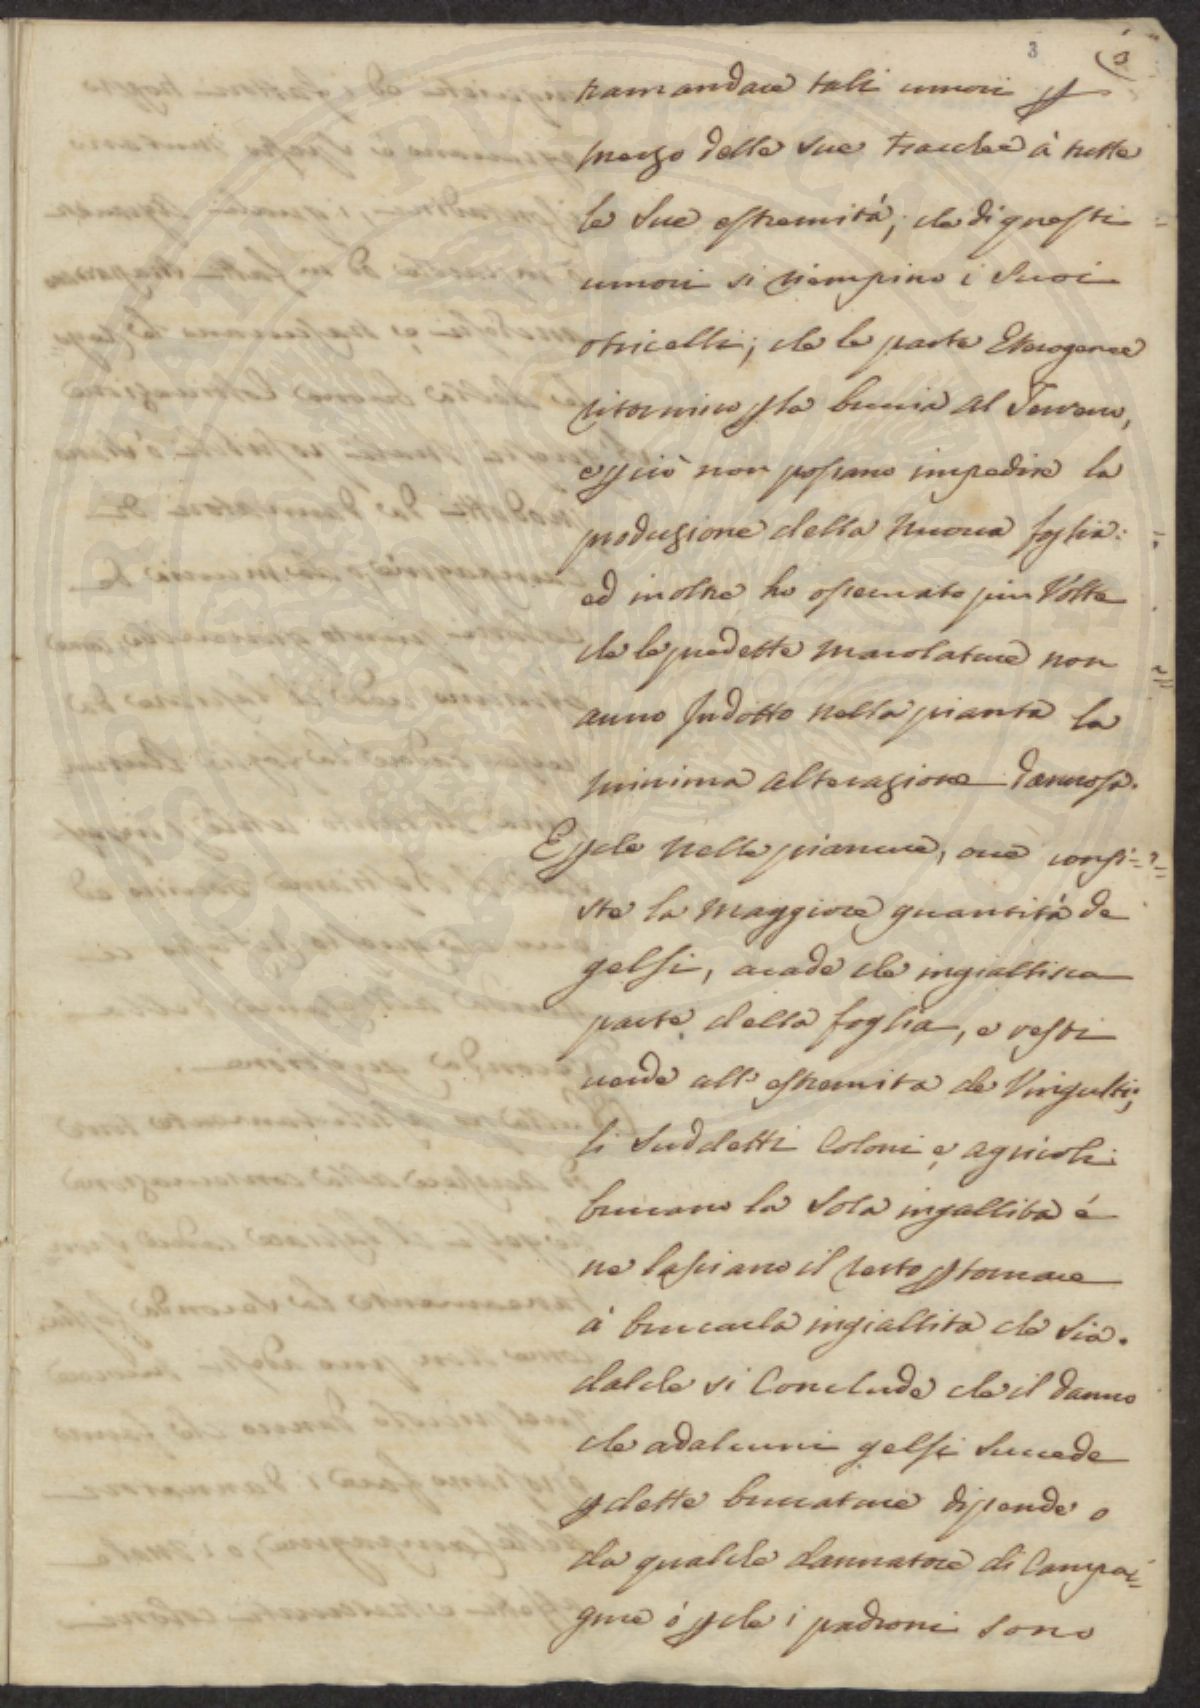 3
3
tramandare tali umori p
mezzo delle sue Trachee à tutte
le sue estremità; che di questi
umori si riempino i suoi
otricelli; che le parte Eterogenee
ritornino p la buccia al Terreno,
e p ciò non possano impedire la
produzione della nuova foglia:
ed inoltre ho osservato piu Volte
che le predette macolature non
anno Indotto nella pianta la
minima alterazione dannosa.
E p che nelle pianure, ove consi=
ste la maggiore quantità de
gelsi, acade che ingiallisca
parte della foglia, e resti
verde all' estremita de Virgulti;
li suddetti Coloni e agricoli
brucano la sola ingallita é
ne lasciano il resto p tornare
à brucarla ingiallita che sia.
dalche si Conclude che il danno
che ad alcuni gelsi succede
p dette brucature dipende o
da qualche dannatore di Campa=
gne ó p che i padroni sono